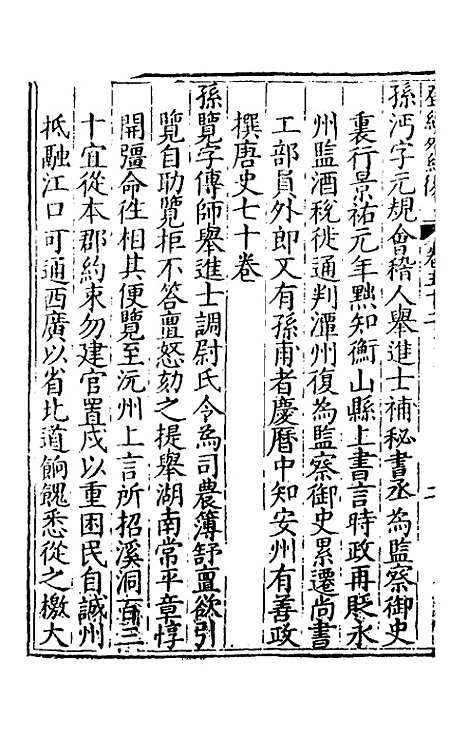 孫沔字元規會稽人舉進士補秘書丞為監察御史
裏行景祐元年黜知衡山縣上書言時政再貶永
州監酒稅徙通判潭州復為監察御史累遷尚書
工部員外郎又有孫甫者慶曆中知安州有善政
撰唐史七十卷
孫覽字傳師舉進士調尉氏令為司農簿舒亶欲引
覽自助覽拒不答亶怒劾之提舉湖南常平章惇
開彊命徃相其便覽至沅州上言所招溪洞百三
十宜從本郡約束勿建官置戍以重困民自誠州
抵融江口可通西廣以省北道餉餽悉從之檄大